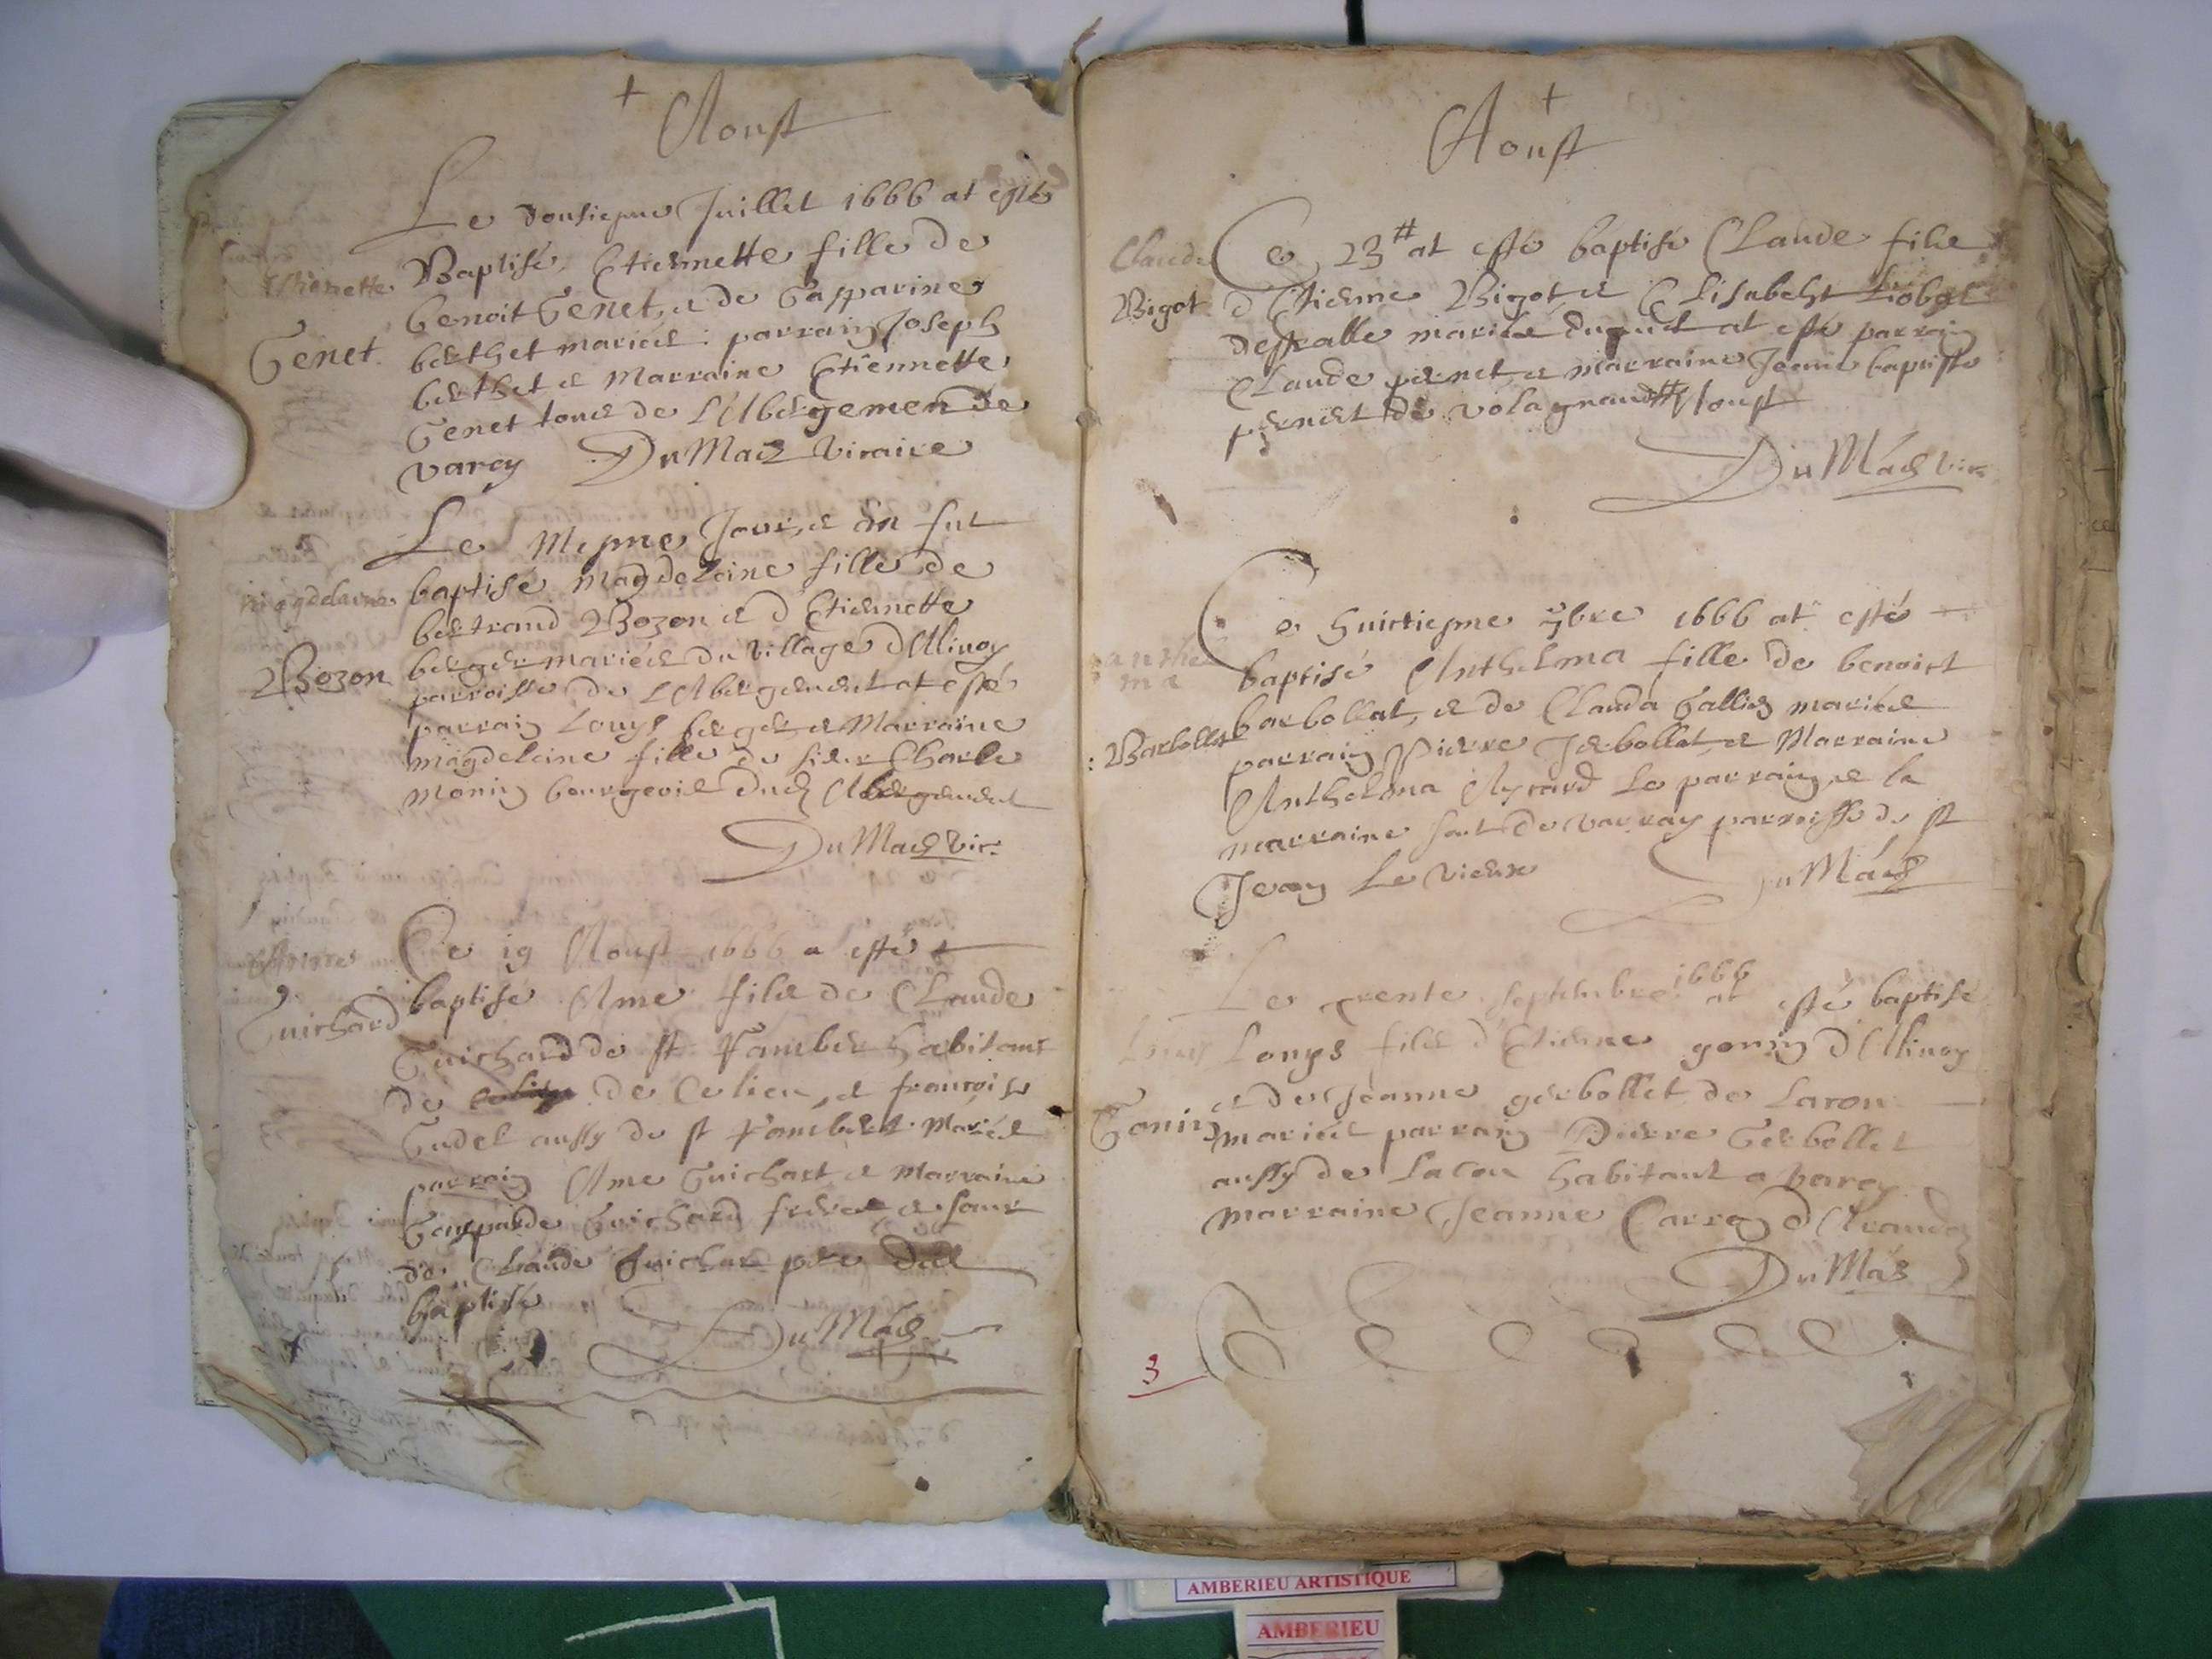 +
Aoust
Le Jour Juillet 1666 at esté
Baptisé, Etiennette fille de
Etiennette
benoit Genet, et de Gasparine
Genet
berthet mariés: parrain Joseph
berthet et Marraine Etiennette
Genet tous de L'Abergemen de
varey DuMas Vicaire
Le Mesme Jour, et an fut
baptisé magdeleine fille de
magdelaine
bertrand Bozon et d Etiennette
Bozon
berger mariés du village dAlinoy
parroisse de LAbergement at esté
parrain Louys berger et Marraine
magdeleine fille de sieur Charle
monin bourgeois dud Abergement
DuMas Vic:
Ce 19 Aoust 1666 a esté
baptisé Ame fils de Claude
Guichard
Guichard de st Rambert habitant
de de Celieu, et francoise
Gudel aussy de st Rambert mariés
parrain Ame Guichart et Marraine
Gasparde Guichard freres et seur
de Claude Guichar pere
baptisé
DuMas
+
Aoust
Ce 23 at esté baptisé Claude fils
Claude
Bigot
d Etienne Bigot et Elisabeht
mariés at esté parrain
Claude pernet, et marraine Jeanne baptiste
pernet de volagnand Aoust
DuMas Vic
Ce huictiesme 7bre 1666 at esté
baptisé Anthelma fille de benoict
anthel
ma
barbollat, et de Clauda Gallien mariés
Barbollat
parrain Pierre Jerbollet, et Marraine
Anthelma Ayrard Le parrain, et la
marraine sont de varray parroisse de st
Jean Le vieux DuMas
Le trente septembre 1666 at esté baptisé
Louys
Louys fils d'Etienne gonin dAlinoy
et de Jeanne gerbollet de Lacon
Gonin
mariés parrain Pierre Gerbollet
aussy de Lacon habitant a varey
marraine Jeanne Carron d Aranda
DuMas
3
AMBERIEU ARTISTIQUE
AMBERIEU